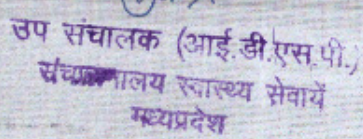 उप संचालक (आई.डी.एस.पी.)
संचालनालय स्वास्थ्य सेवायें
मध्यप्रदेश